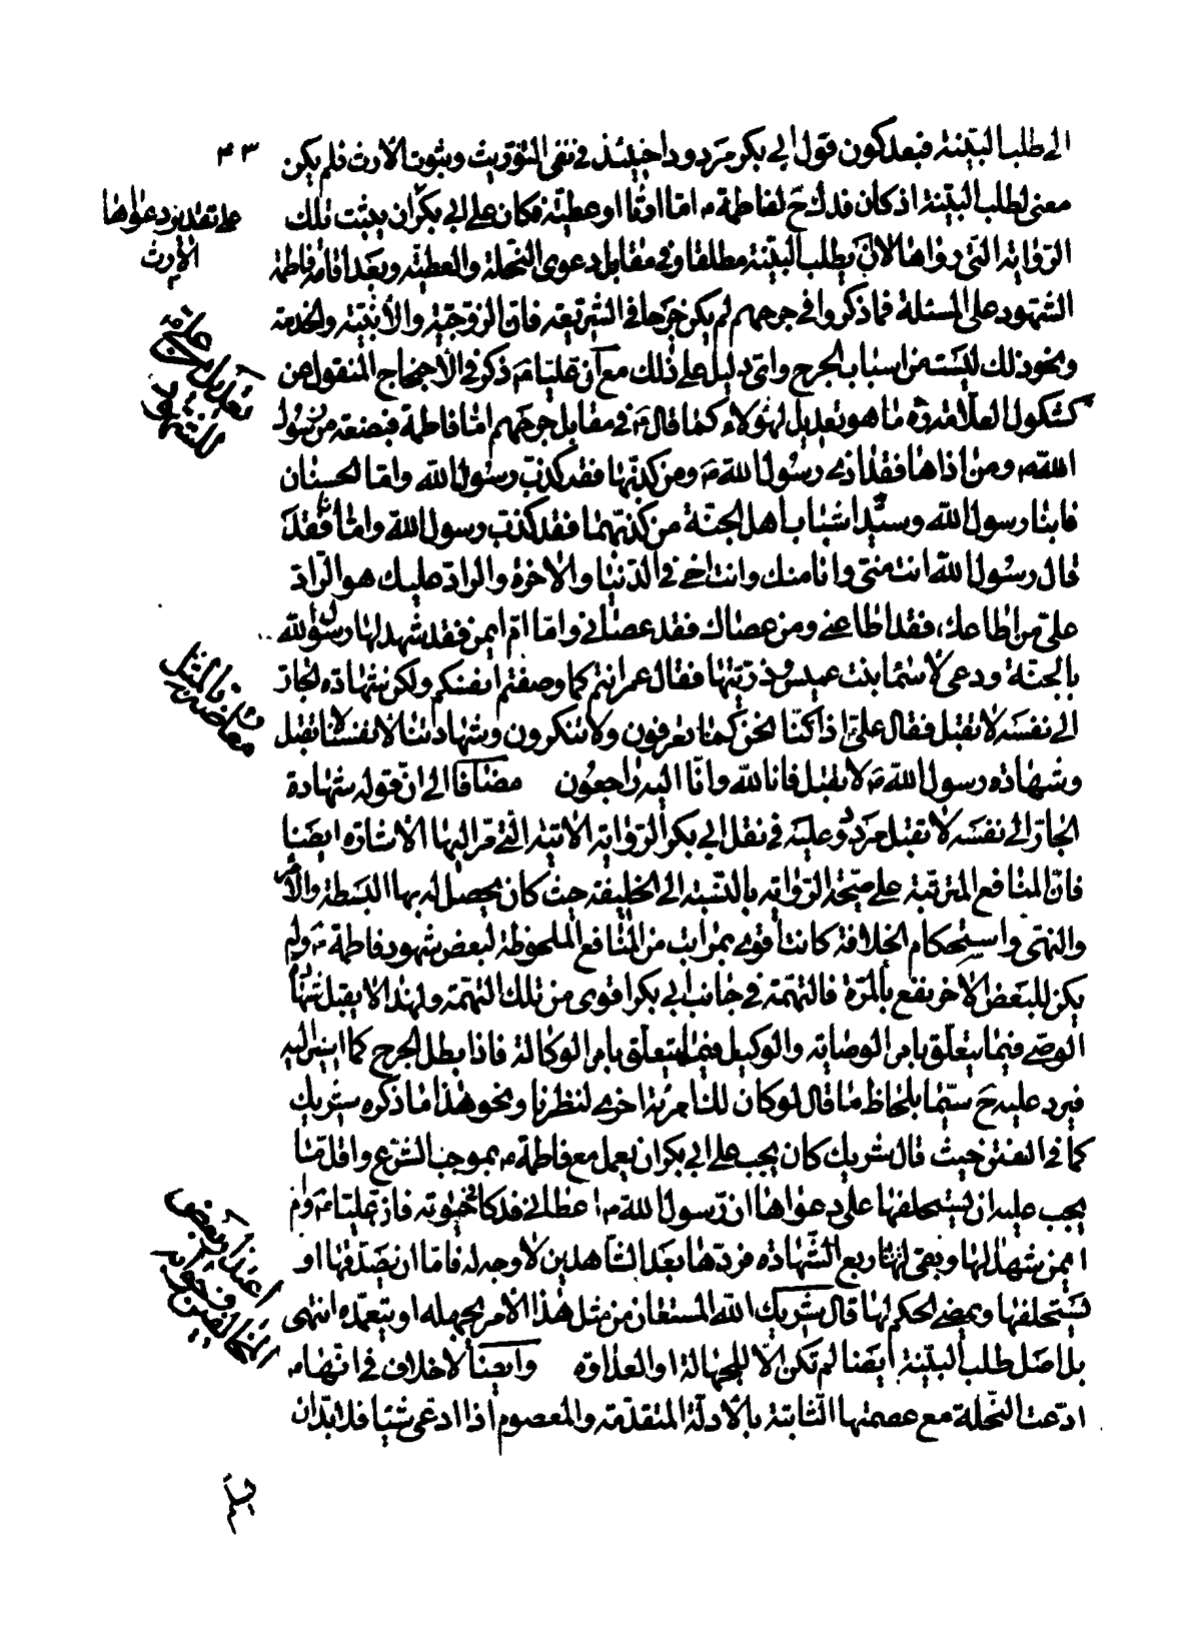 ٤٣
الى طلب البيّنة فبعد كون قول ابي بكر مردودا حينئذ في نفى التوريث وثبوت الارث فلم يكن
معنى لطلب البيّنة اذ كان فدك ح لفاطمة ع امّا ارثا او عطيّة فكان على ابي بكر ان يثبت تلك
على تقدير دعواها
الارث
الرّواية الّتي رواها لا ان يطلب البيّنة مطلقا وفي مقابل دعوى النّحلة والعطيّة وبعد اقامة فاطمة
الشهود على المسئلة فما ذكروا في جرحهم لم يكن جرحا في الشريعة فانّ الزوجيّة والابنيّة والخدمة
ونحو ذلك ليست من اسباب الجرح واىّ دليل على ذلك مع انّ عليّا ع ذكر في الاحتجاج المنقول عن
كشكول العلّامة ره ما هو تعديل لهؤلاء كما قال ع في مقابل جرحهم امّا فاطمة فبضعة من رسول
الله ص ومن اذاها فقد اذى رسول الله ص ومن كذّبها فقد كذّب رسول الله وامّا الحسنان
فابنا رسول الله وسيّدا شباب اهل الجنّة من كذّبهما فقد كذّب رسول الله وامّا انا فقد
قال رسول الله انت منّي وانا منك وانت اخي في الدّنيا والاخرة والرادّ عليك هو الرّادّ
علىّ من اطاعك فقد اطاعني ومن عصاك فقد عصاني وامّا امّ ايمن فقد شهد لها رسول الله
بالجنّة ودعى لاسماء بنت عميس وذرّيّتها فقال عمر انتم كما وصفتم انفسكم ولكن شهادة الجارّ
الى نفسه لا تقبل فقال علىّ اذا كنّا نحن كما تعرفون ولا تنكرون وشهادتنا لانفسنا لا تقبل
وشهادة رسول الله ص لا تقبل فانا لله وانّا اليه راجعون مضافا الى انّ قوله شهادة
الجارّ الى نفسه لا تقبل مردود عليه في نقل ابي بكر الرّواية الاتية الّتي مرّ اليها الاشارة ايضا
فانّ المنافع المترتّبة على صحّة الرّواية بالنّسبة الى الخليفة حيث كان يحصل له بها البسطة والامر
والنهى واستحكام الخلافة كانت اقوى بمراتب من المنافع الملحوظة لبعض شهود فاطمة ع ولم
يكن للبعض الاخر نفع بالمرّة فالتهمة في جانب ابي بكر اقوى من تلك التهمة ولهذا لا يقبل شهادة
الوصي فيما يتعلّق بامر الوصاية والوكيل فيما يتعلّق بامر الوكالة فاذا بطل الجرح كما اشير اليه
فيرد عليه ح سيّما بلحاظ ما قال لو كان لك امرئة اخرى لنظرنا ونحو هذا ما ذكره شريك
كما في الفتن حيث قال شريك كان يجب على ابي بكر ان يعمل مع فاطمة ع بموجب الشرع واقلّ ما
يجب عليه ان يستحلفها على دعواها ان رسول الله ص اعطاني فدكا في حيوته فانّ عليّا ع وامّ
ايمن شهدا لها وبقي لها ربع الشّهادة فردّها بعد الشاهدين لا وجه له فامّا ان يصدّقها او
يستحلفها ويمضي الحكم لها قال شريك الله المستعان من مثل هذا الامر بجهله او يتعمّده انتهى
بل اصل طلب البيّنة ايضا لم تكن الّا للجهالة او العداوة وايضا لا خلاف في انّها ع
ادّعت النّحلة مع عصمتها الثّابتة بالادلّة المتقدّمة والمعصوم اذا ادّعى شيئا فلا بدّ ان